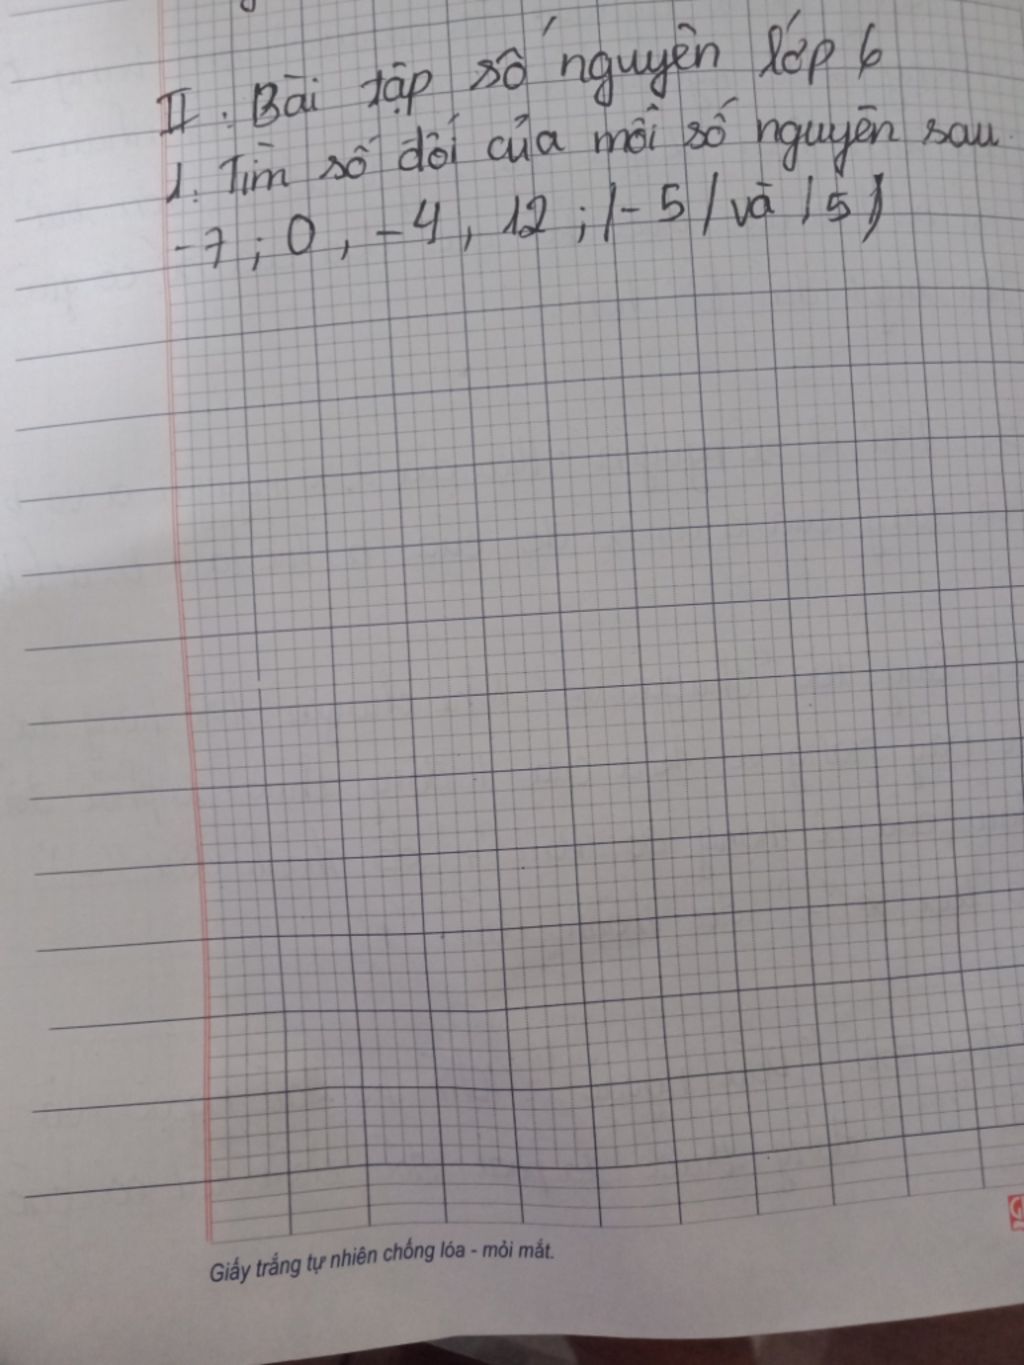 II. Bài tập số nguyên lớp 6
1. Tìm số đối của mỗi số nguyên sau
-7 ; 0 , -4 , 12 ; |-5| và |5|
Giấy trắng tự nhiên chống lóa - mỏi mắt.